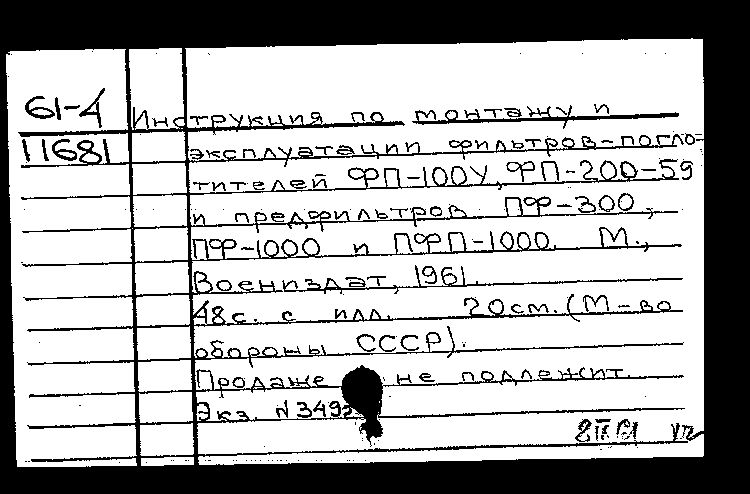 61-4
11681
Инструкция по монтажу и
эксплуатации фильтров-погло=
тителей ФП-100У, ФП-200-59
и предфильтров ПФ-300,
ПФ-1000 и ПФП-1000. М.,
Воениздат, 1961.
48с. с илл. 20см. (М-во
обороны СССР).
Продаже не подлежит.
Экз. №3492
8 IX 61